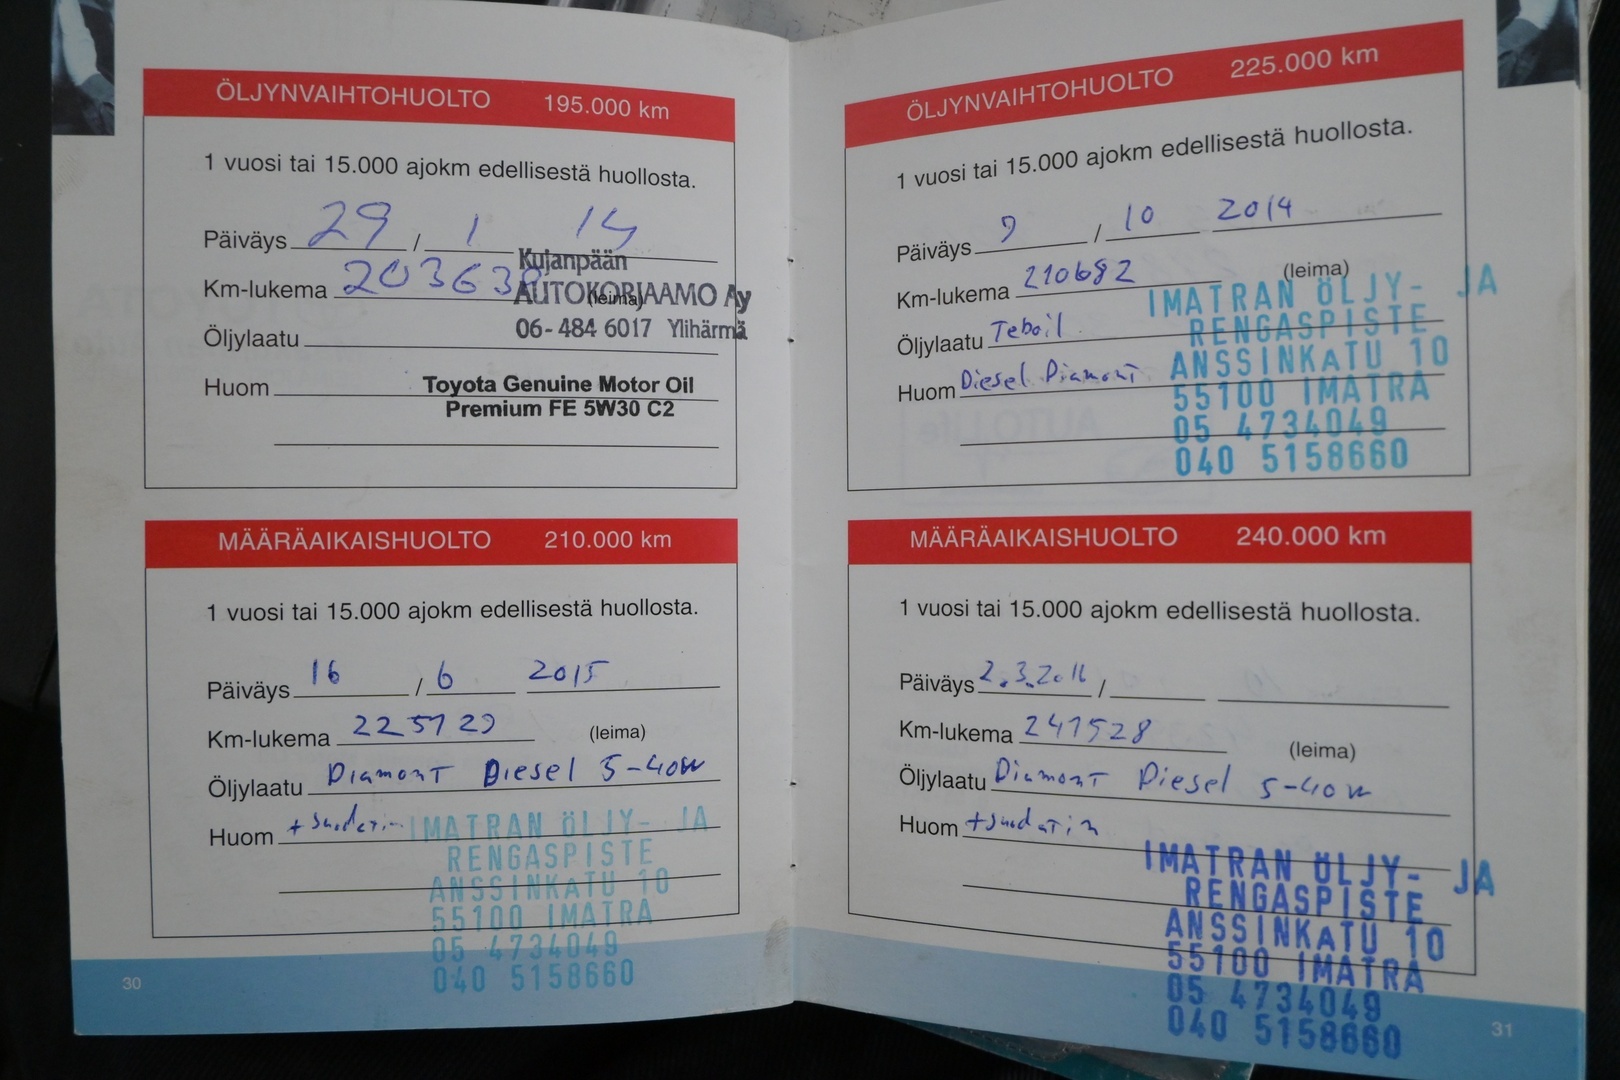 ÖLJYNVAIHTOHUOLTO 195.000 km
1 vuosi tai 15.000 ajokm edellisestä huollosta.
Päiväys 29 / 1 14
Km-lukema 203638 (leima)
Kujanpään
AUTOKORJAAMO Ay
06-484 6017 Ylihärmä
Öljylaatu
Huom
Toyota Genuine Motor Oil
Premium FE 5W30 C2
MÄÄRÄAIKAISHUOLTO 210.000 km
1 vuosi tai 15.000 ajokm edellisestä huollosta.
Päiväys 16 / 6 2015
Km-lukema 225729 (leima)
Öljylaatu Diamont Diesel 5-40W
Huom + Suodatin
IMATRAN ÖLJY- JA
RENGASPISTE
ANSSINKATU 10
55100 IMATRA
05 4734049
040 5158660
30
ÖLJYNVAIHTOHUOLTO 225.000 km
1 vuosi tai 15.000 ajokm edellisestä huollosta.
Päiväys 9 / 10 2014
Km-lukema 210682 (leima)
Öljylaatu Teboil
Huom Diesel Diamont
IMATRAN ÖLJY- JA
RENGASPISTE
ANSSINKATU 10
55100 IMATRA
05 4734049
040 5158660
MÄÄRÄAIKAISHUOLTO 240.000 km
1 vuosi tai 15.000 ajokm edellisestä huollosta.
Päiväys 2.3.2016 /
Km-lukema 241528 (leima)
Öljylaatu Diamont Diesel 5-40W
Huom + suodatin
IMATRAN ÖLJY- JA
RENGASPISTE
ANSSINKATU 10
55100 IMATRA
05 4734049
040 5158660
31